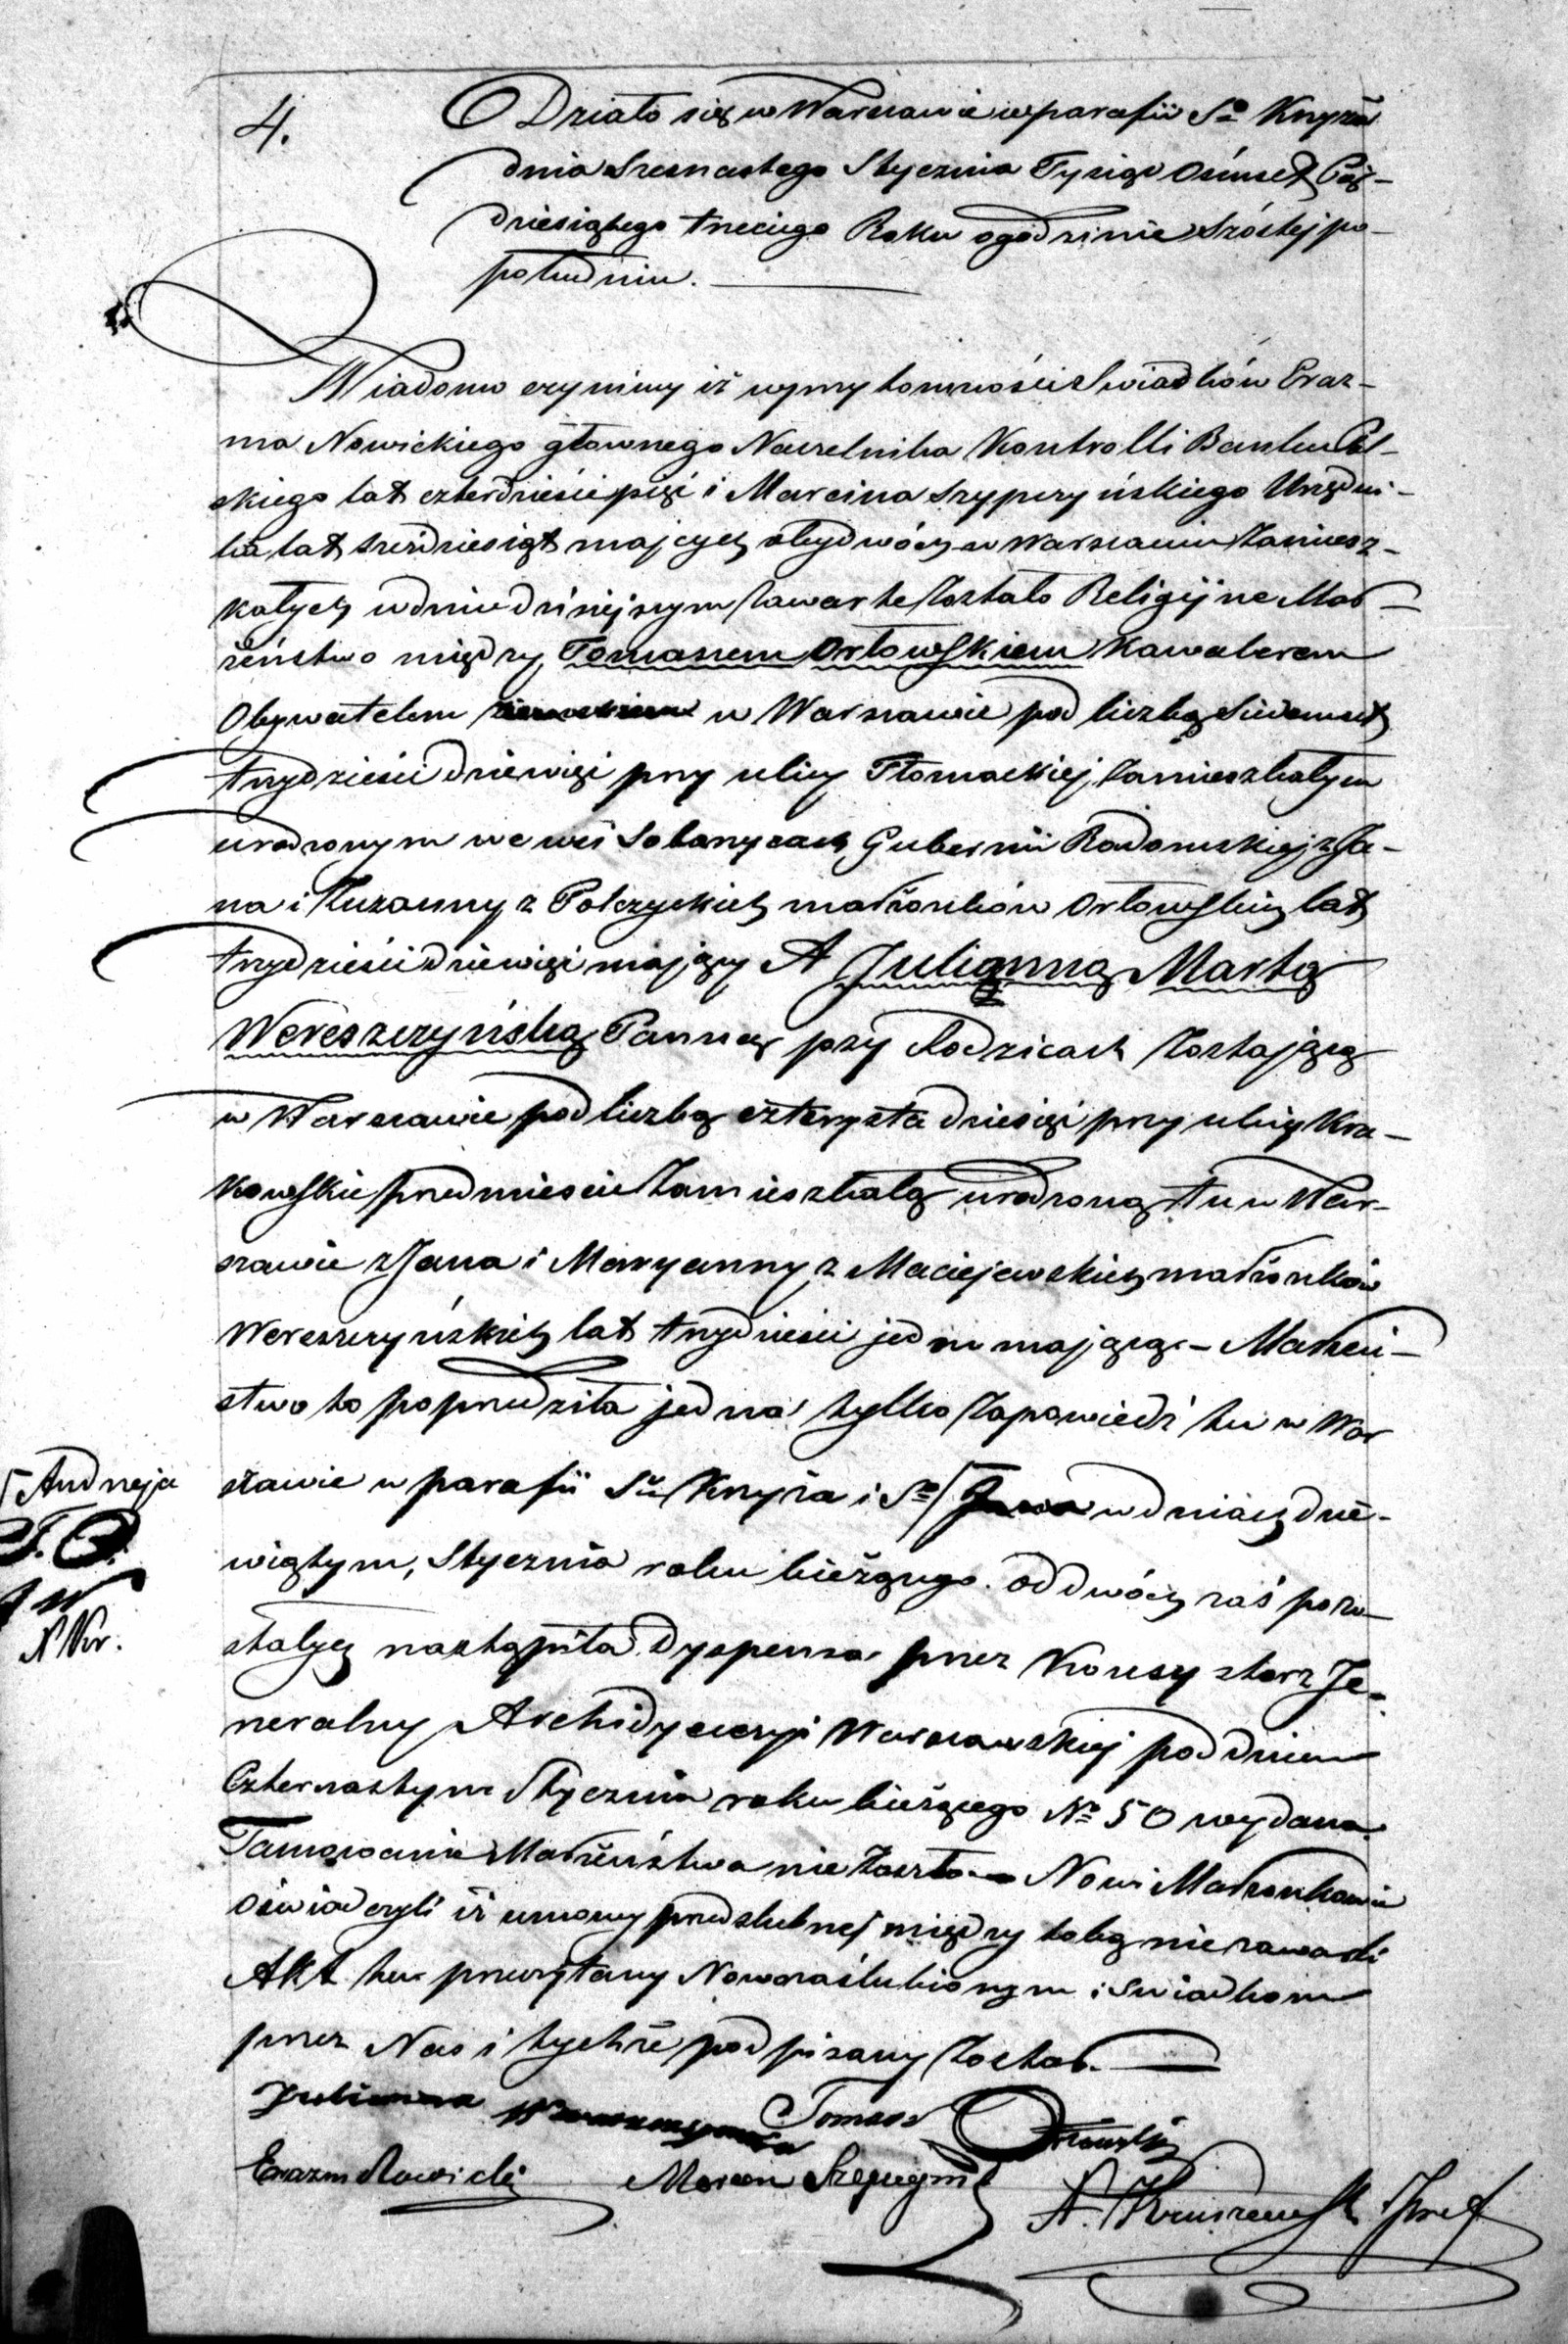 4.
Działo się w Warszawie w parafii Sº Krzyża
dnia Szesnastego Stycznia Tysiąc Ośmset Pięć-
dziesiątego trzeciego Roku o godzinie Szóstej po-
południu.
Wiadomo czynimy iż w przytomności Swiadków Eraz-
ma Nowickiego głównego Naczelnika Kontrolli Banku Pol-
skiego lat czterdzieści pięć i Marcina Szypszyńskiego Urzędni-
ka lat sześdziesiąt mających obydwóch w Warszawie Zamiesz-
kałych w dniu dzisiejszym Zawarte Zostało Religijne Mał-
żeństwo między Tomaszem Orłowskiem Kawalerem
Obywatelem w Warszawie pod liczbą Siedmset
trzydzieści dziewięć przy ulicy Tłomackiej Zamieszkałym
urodzonym we wsi Gubernii Radomskiej z Ja-
na i Zuzanny z małżonków Orłowskich lat
trzydzieści dziewięć mający A Julianną Martą
Wereszczyńską Panną przy Rodzicach Zostającą
w Warszawie pod liczbą czterysta dziesięć przy ulicy Kra-
kowskie przedmieście Zamieszkałą urodzoną tu w War-
szawie z Jana i Maryanny z Maciejewskich małżonków
Wereszczyńskich lat trzydzieści jeden mającą - Małżeń-
stwo to poprzedziła jedna tylko Zapowiedź tu w War
szawie w parafii Sº Krzyża i Sº Jana w dniach dzie-
wiątym, Stycznia roku bieżącego. od dwóch zaś pozo-
stałych nastąpiła Dyspensa przez Konsystorz Je-
neralny Archidyecezyi Warszawskiej pod dniem
Czternastym Stycznia roku bieżącego Nº 50 wydana.
Tamowanie Małżeństwa nie Zaszło - Nowi Małżonkowie
oświadczyli iż umowy przedślubnej między sobą nie zawarli
Akt ten przeczytany Nowozaślubionym i Swiadkom
przez Nas i tychże podpisany Został.
Andrzeja
T.O.
JW
Julianna Wereszczyńska Tomasz Orłowski
Erazm Nowicki Marcin